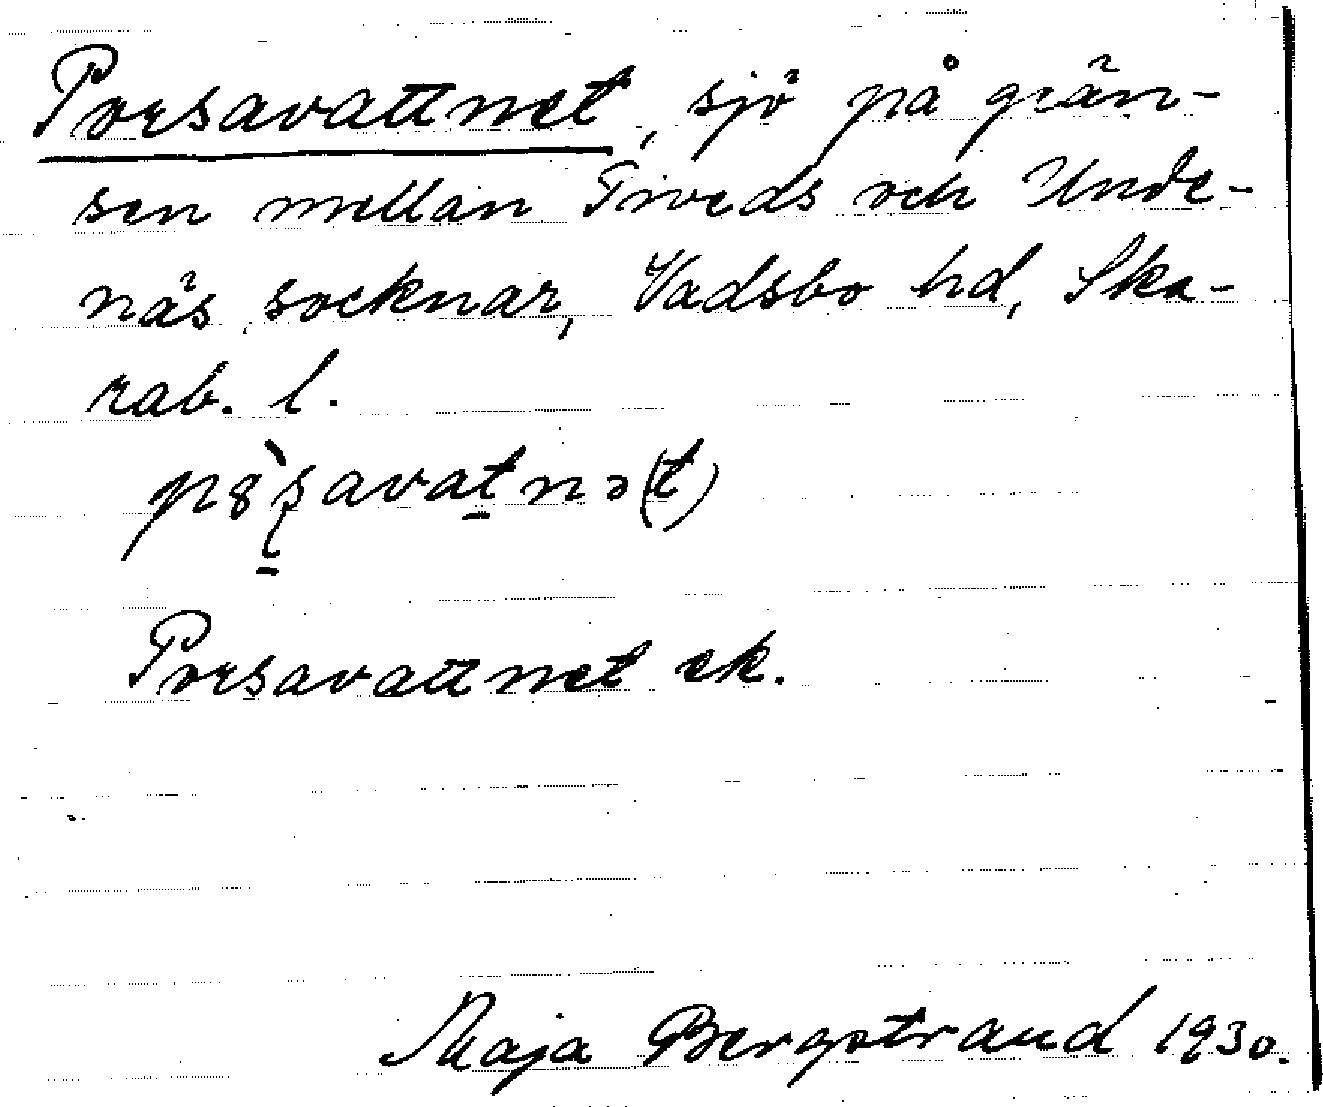 Porsavattnet, sjö på grän-
sen mellan Tiveds och Unde-
näs socknar, Vadsbo hd, Ska-
rab. l.
Porsavattnet ek.
Maja Bergstrand 1930.